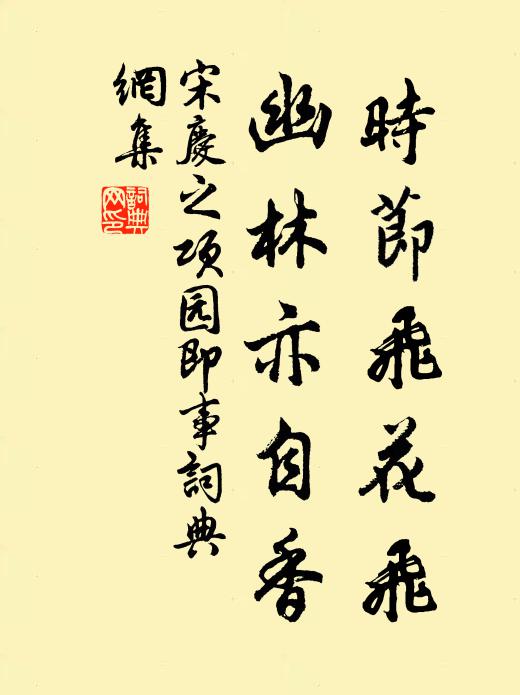 時節飛花飛
幽林亦自香
宋慶之项园即事詞典
網集
詞典
网印